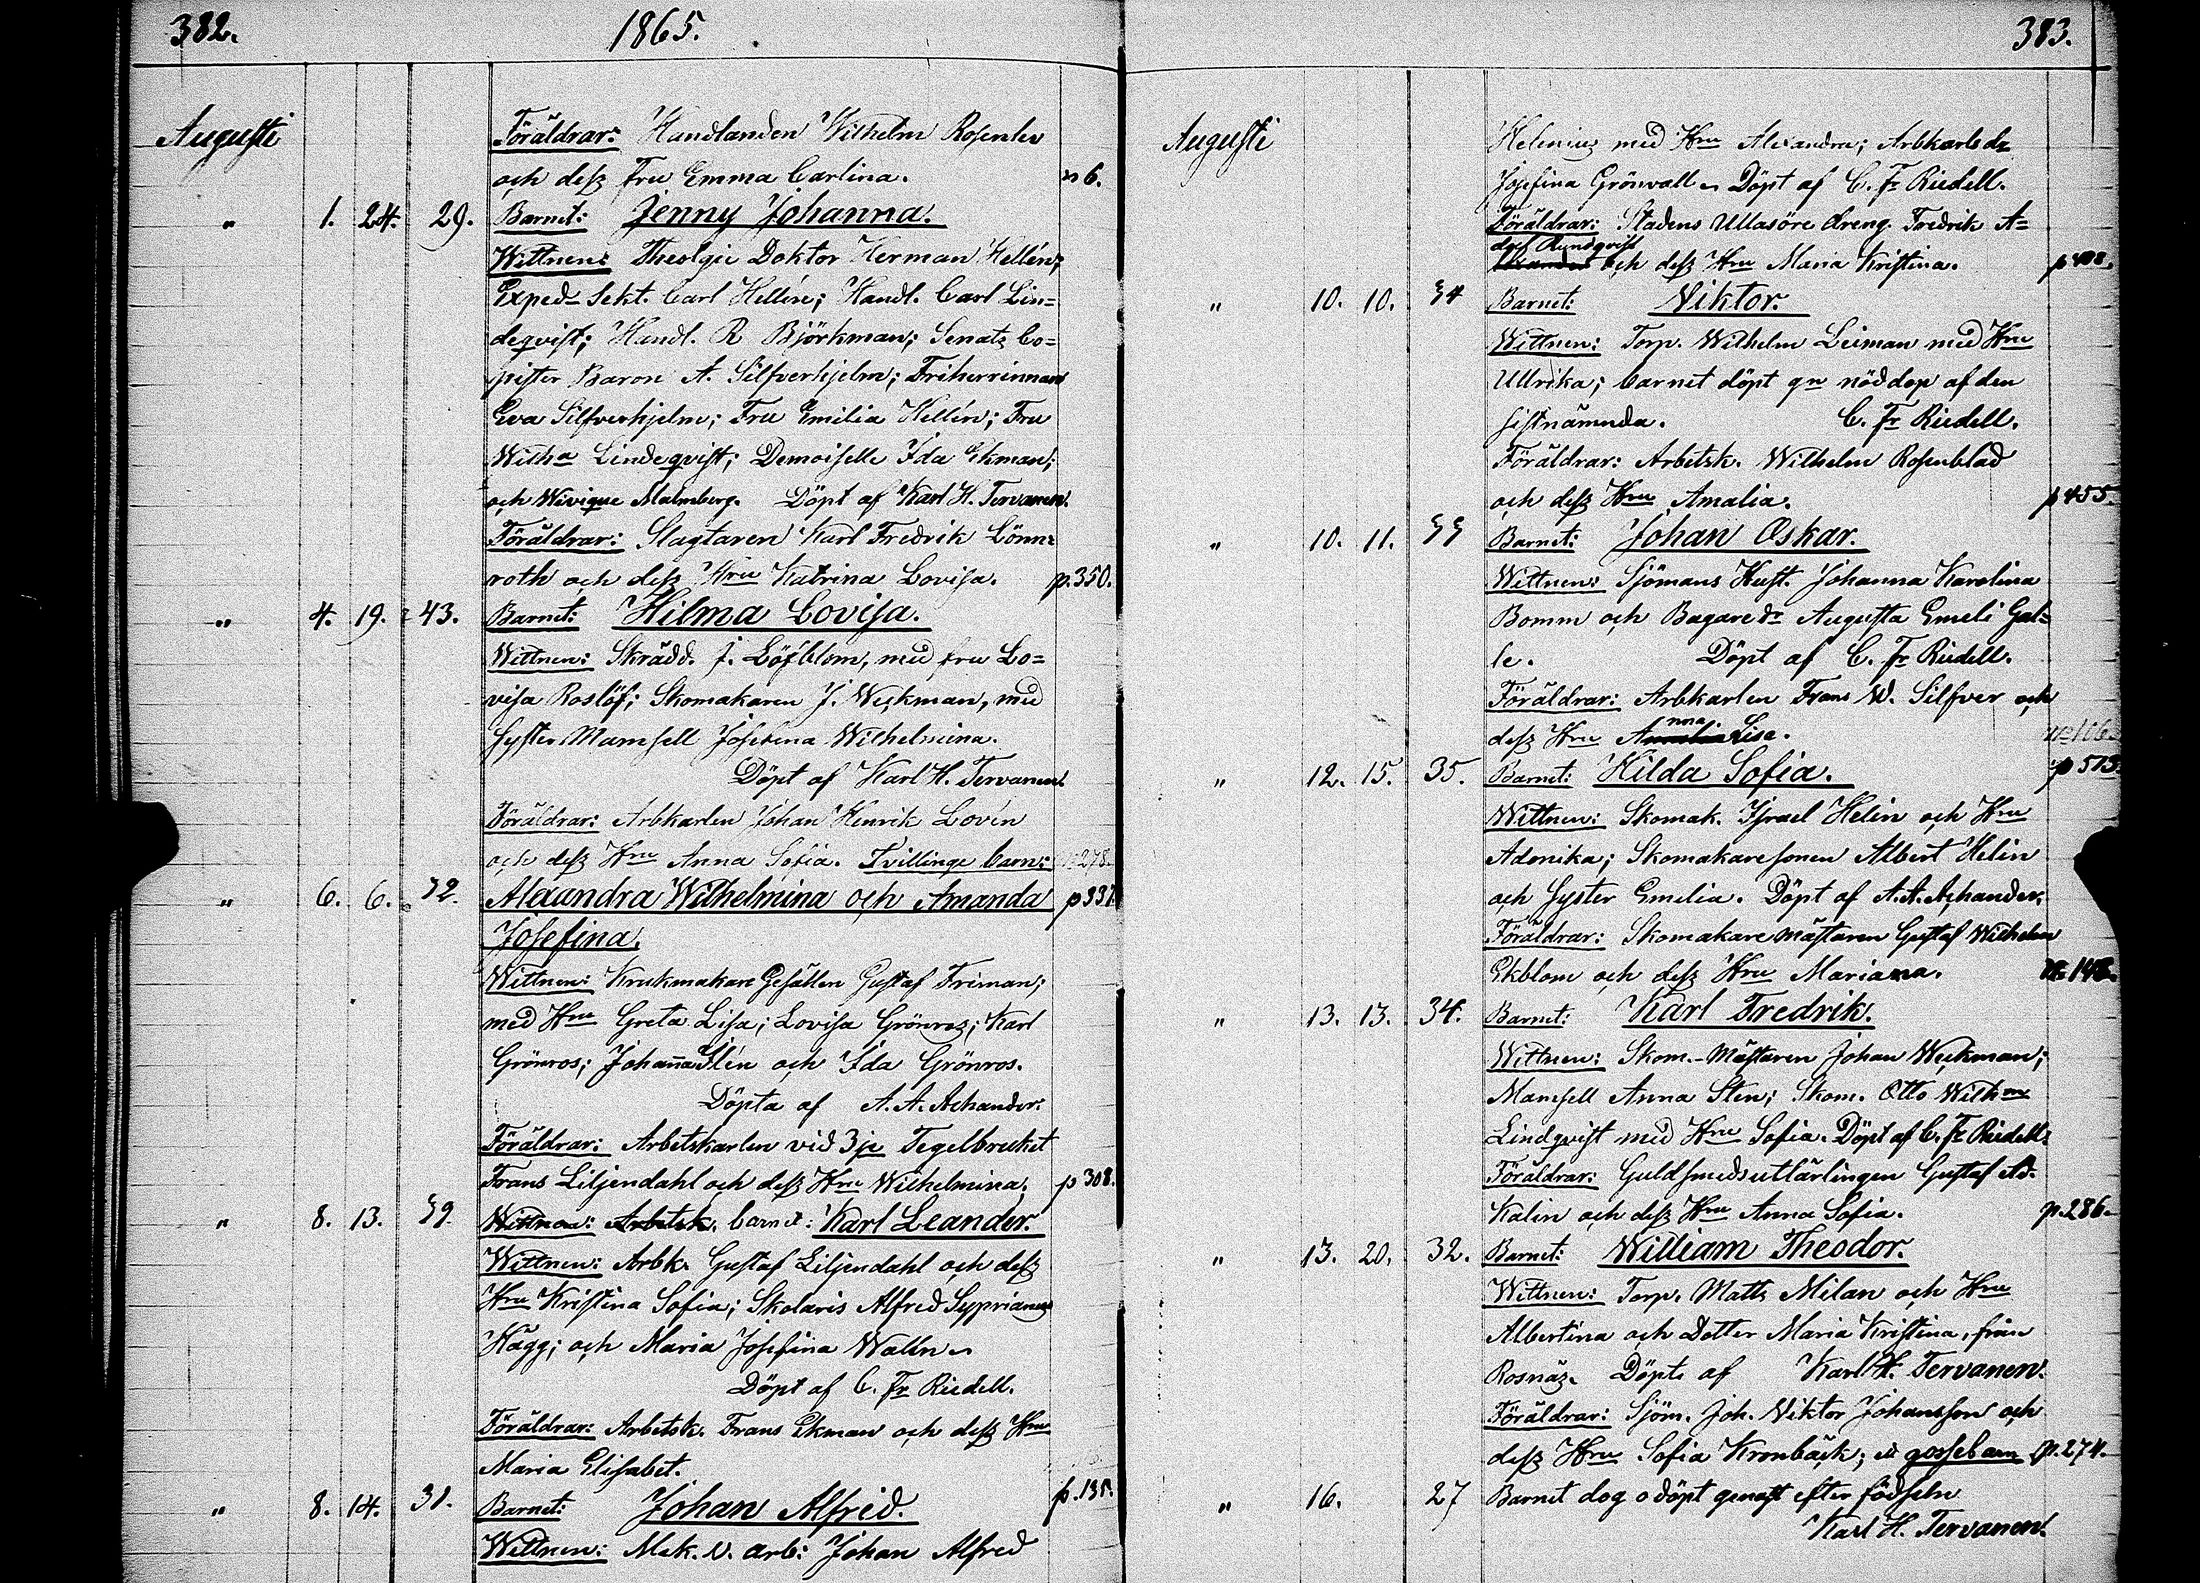 382. 1865.
Augusti
Föräldrar: Handlanden Wilhelm Rosenlew
och dess fru Emma Carlina. n 6.
" 1. 24. 29. Barnet: Jenny Johanna.
Wittnen: Theolgie Doktor Herman Hellén;
Exped- Sekt. Carl Hellén; Handl. Carl Lin=
deqvist; Handl. R Björkman; Senats Co=
pister Baron A. Silfverhjelm; Friherrinnan
Eva Silfverhjelm; Fru Emilia Hellén; Fru
Wilha Lindeqvist; Demoiselle Ida Ekman;
och Wivique Malmberg. Döpt af Karl H. Tervanen.
Föräldrar: Slagtaren Karl Fredrik Lönn=
roth och dess Hru Katrina Lovisa. p.350.
" 4. 19. 43. Barnet: Hilma Lovisa.
Wittnen: Skrädd. J. Löfblom, med fru Lo=
visa Roslöf; Skomakaren J. Weckman, med
syster Mamsell Josefina Wilhelmina.
Döpt af Karl H. Tervanen.
Föräldrar: Arbkarlen Johan Henrik Lovén
och dess Hru Anna Sofia. Tvillinge barn: 278.
" 6. 6. 32. Alexandra Wilhelmina och Amanda p337
Josefina.
Wittnen: Krukmakare Gesällen Gustaf Friman;
med Hru Greta Lisa; Lovisa Grönros; Karl
Grönros; Johanna Stén och Ida Grönros.
Döpta af A. A. Achander.
Föräldrar: Arbetskarlen vid 3je Tegelbruket
Frans Liljendahl och dess Hru Wilhelmina; p 308.
" 8. 13. 39. Wittnen: Arbetsk. barnet: Karl Leander.
Wittnen: Arbk. Gustaf Liljendahl och dess
Hru Kristina Sofia; Skolaris Alfred Syprianus
Hägg; och Maria Josefina Walln.
Döpt af C. Fr Riedell.
Föräldrar: Arbetsk. Frans Ekman och dess Hru
Maria Elisabet.
" 8. 14. 31. Barnet: Johan Alfred. p.135.
Wittnen: Mek. v. arb: Johan Alfred
383.
Augusti
Helenius med Hru Alexandra; Arbkarls dr
Josefina Grönvall. Döpt af C. Fr Riedell.
Föräldrar: Stadens Ullasöre dreng Fredrik A=
dolf Rundqvist
och dess Hru Maria Kristina. p 408.
" 10. 10. 34 Barnet: Viktor.
Wittnen: Torp. Wilhelm Leiman med Hru
Ullrika; barnet döpt gn nöddop af den
sistnämnda. C. Fr Riedell.
Föräldrar: Arbetsk. Wilhelm Rosenblad
och dess Hru Amalia. p 455.
" 10. 11. 33 Barnet: Johan Oskar.
Wittnen: Sjömans Hust. Johanna Karolina
Bomm och Bagare dr Augusta Emeli Gal=
le. Döpt af C. Fr Riedell.
Föräldrar: Arbkarlen Frans W. Silfver och
nna
dess Hru Amalia Lisa. no 106
" 12. 15. 35. Barnet: Hilda Sofia. p 575.
Wittnen: Skomak. Israel Helin och Hru
Adonika; Skomakaresonen Albert Helin
och syster Emilia. Döpt af A. A. Achander.
Föräldrar: Skomakare mästaren Gustaf Wilhelm
Ekblom och dess Hru Mariana. n 142.
" 13. 13. 34. Barnet: Karl Fredrik.
Wittnen: Skom.-Mästaren Johan Weckman;
Mamsell Anna Sten; Skom. Otto Wilhm
Lindqvist med Hru Sofia. Döpt af C. Fr Riedell.
Föräldrar: Guldsmedsutlärlingen Gustaf Ad.
Kalin och dess Hru Anna Sofia. p.286.
" 13. 20. 32. Barnet: William Theodor.
Wittnen: Torp. Matts Milan och Hru
Albertina och Dotter Maria Kristina, från
Rosnäs. Döpt af Karl H. Tervanen.
Föräldrar: Sjöm. Joh. Viktor Johansson och
dess Hru Sofia Kronbäck; ett gossebarn p.274.
" 16. 27 Barnet dog odöpt genast efter födseln
Karl H. Tervanen.